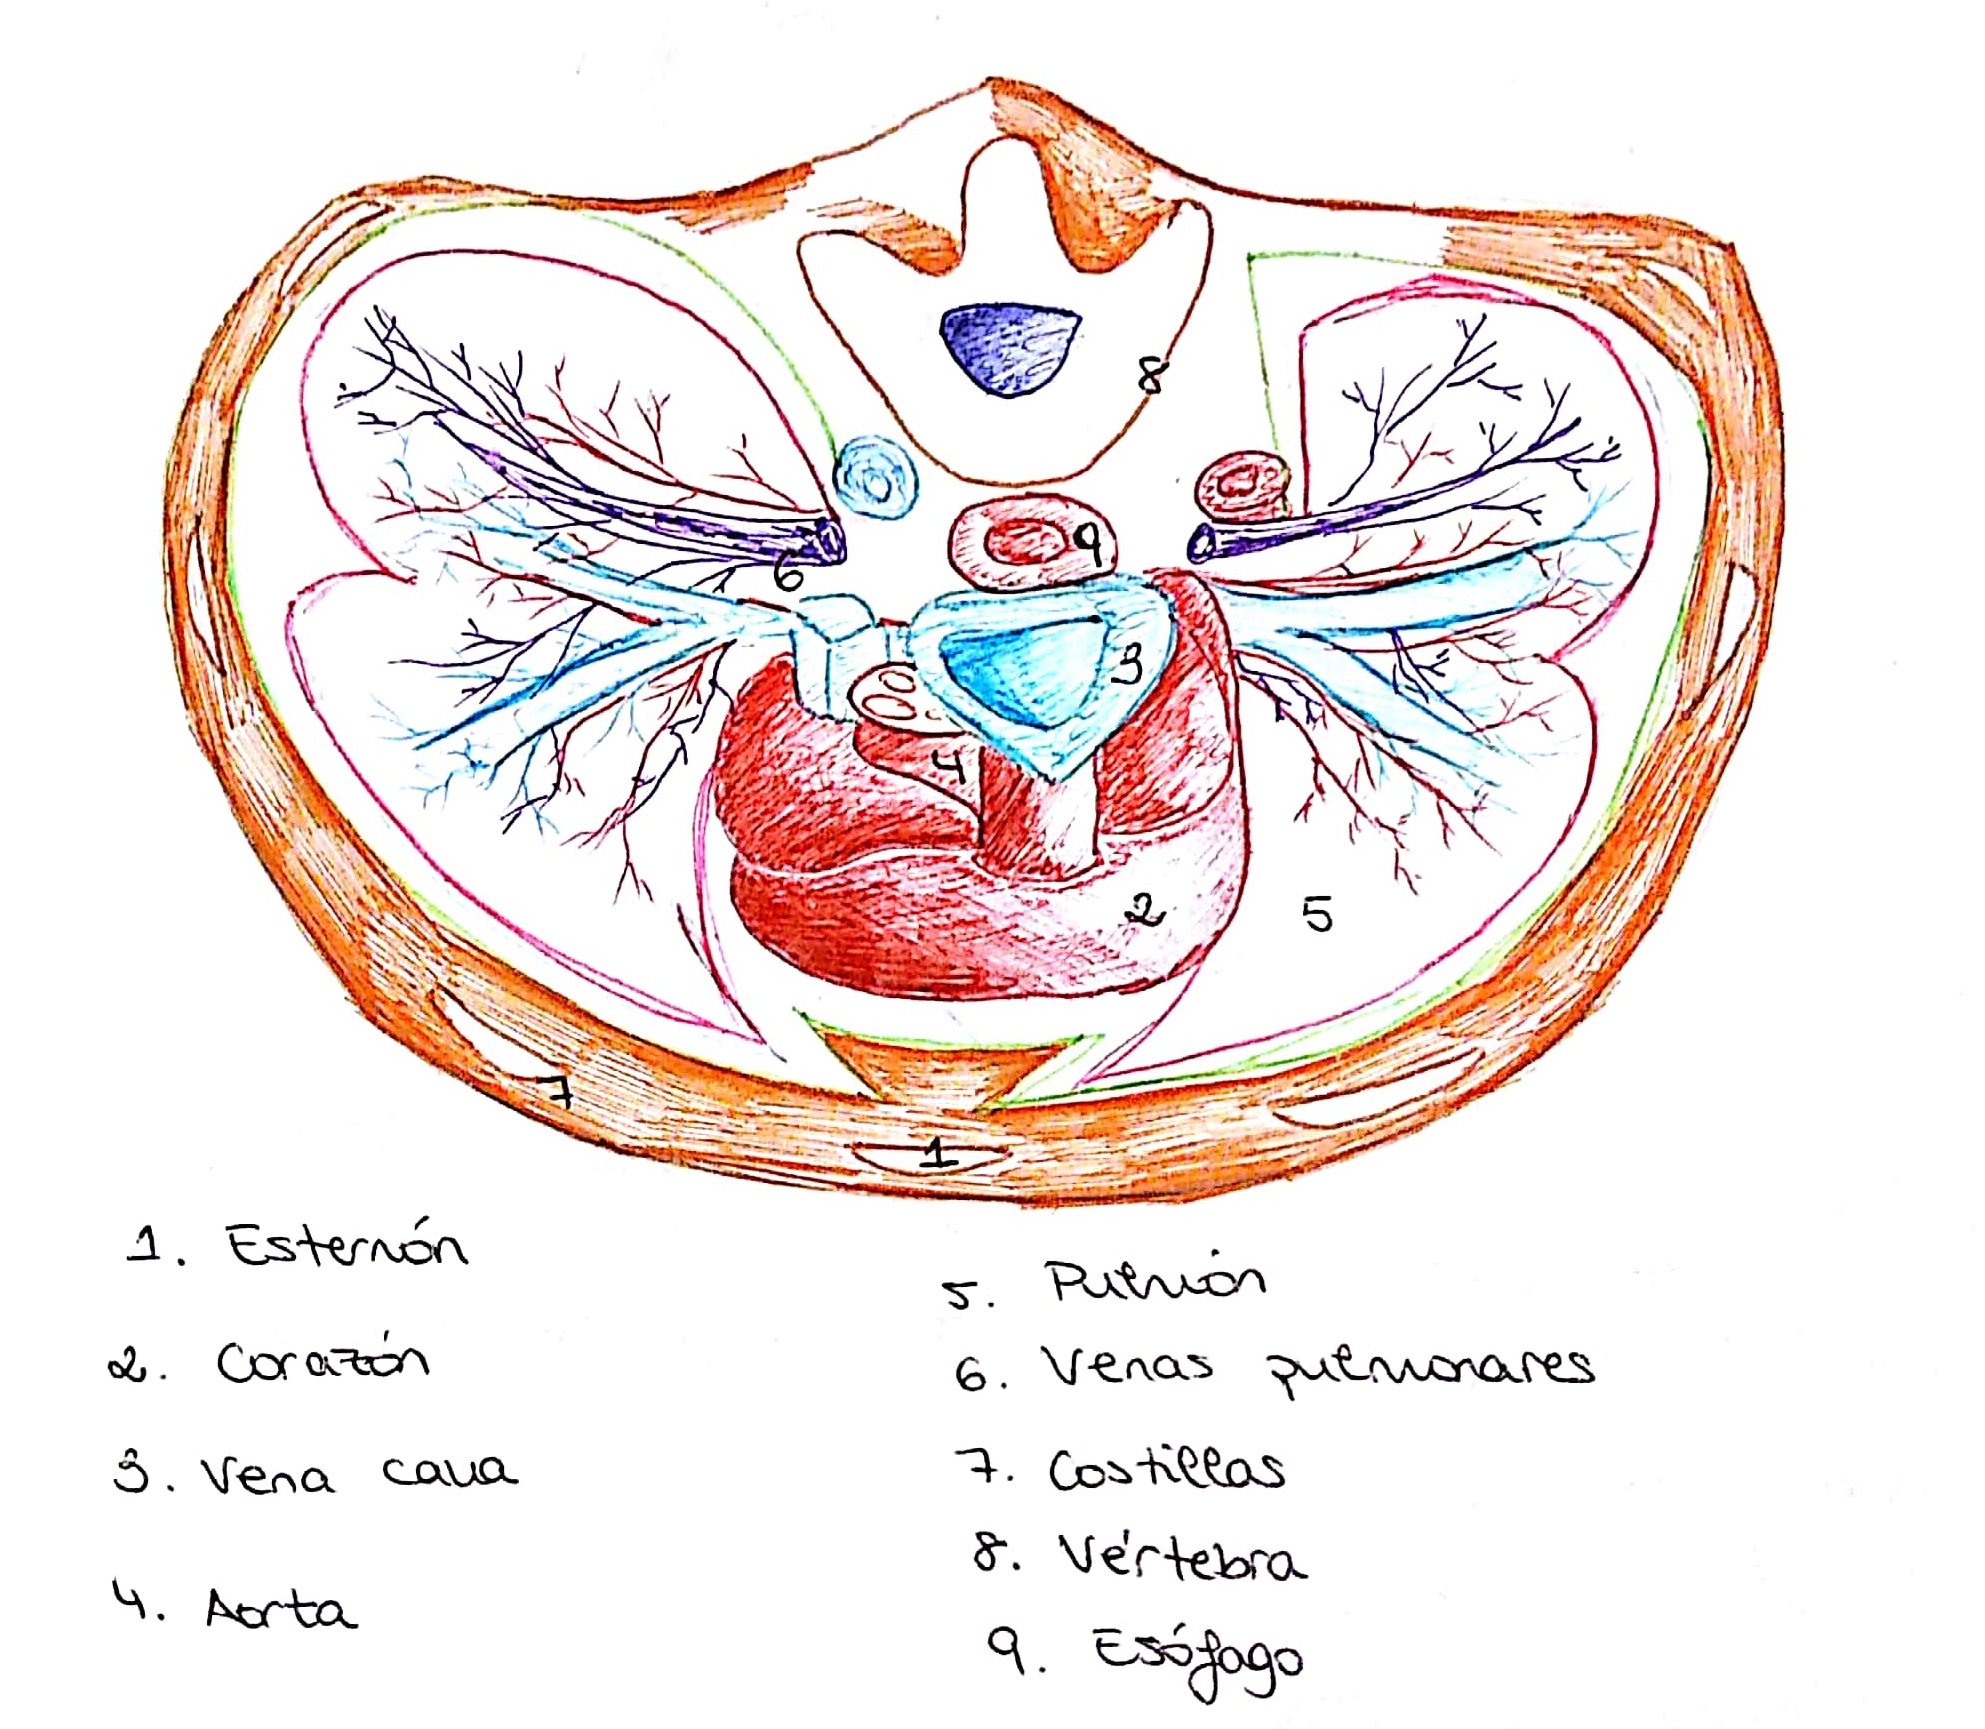 8
9
6
3
4
2
5
7
1
1. Esternón
2. Corazón
3. Vena cava
4. Aorta
5. Pulmón
6. Venas pulmonares
7. Costillas
8. Vértebra
9. Esófago